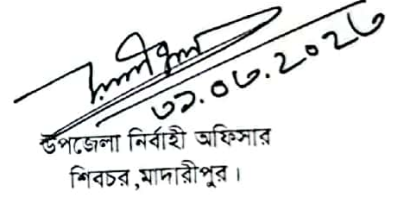 ৩১.০৩.২০২৬
উপজেলা নির্বাহী অফিসার
শিবচর,মাদারীপুর।